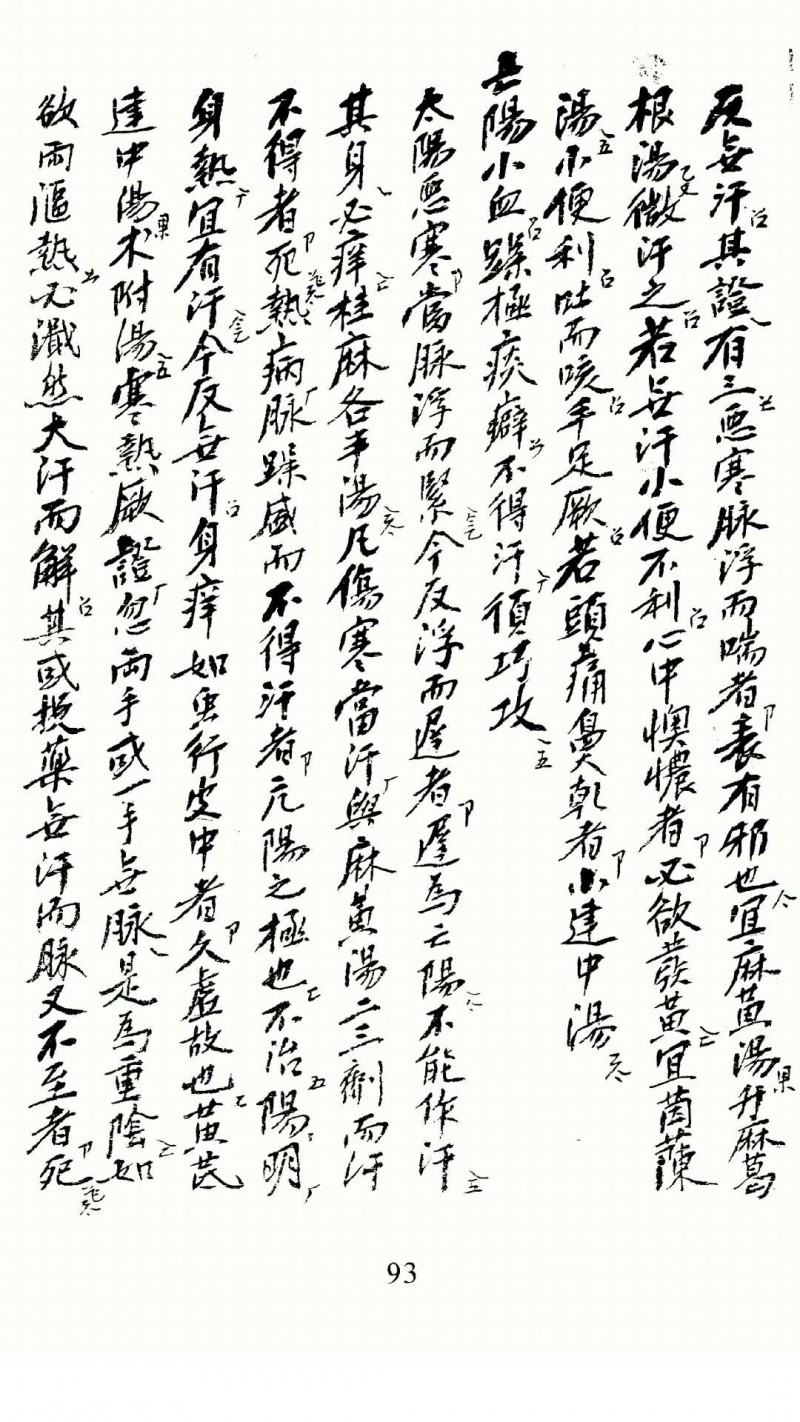 反無汗其證有三惡寒脉浮而喘者表有邪也宜麻黄湯升麻葛
根湯微汗之若無汗小便不利心中懊憹者必欲發黄宜茵蔯
湯小便利吐而咳手足厥若頭痛鼻乾者小建中湯
亡陽小血躁極痰癖不得汗須巧攻
太陽惡寒當脉浮而緊今反浮而遲者遲為亡陽不能作汗
其身必痒桂麻各半湯凡傷寒當汗與麻黄湯二三劑而汗
不得者死熱病脉躁盛而不得汗者亢陽之極也不治陽明
身熱宜有汗今反無汗身痒如虫行皮中者久虚故也黄芪
建中湯朮附湯寒熱厥證忽両手或一手無脉是為重陰如
欲雨漚熱必濈然大汗而解其或投藥無汗而脉又不至者死
93